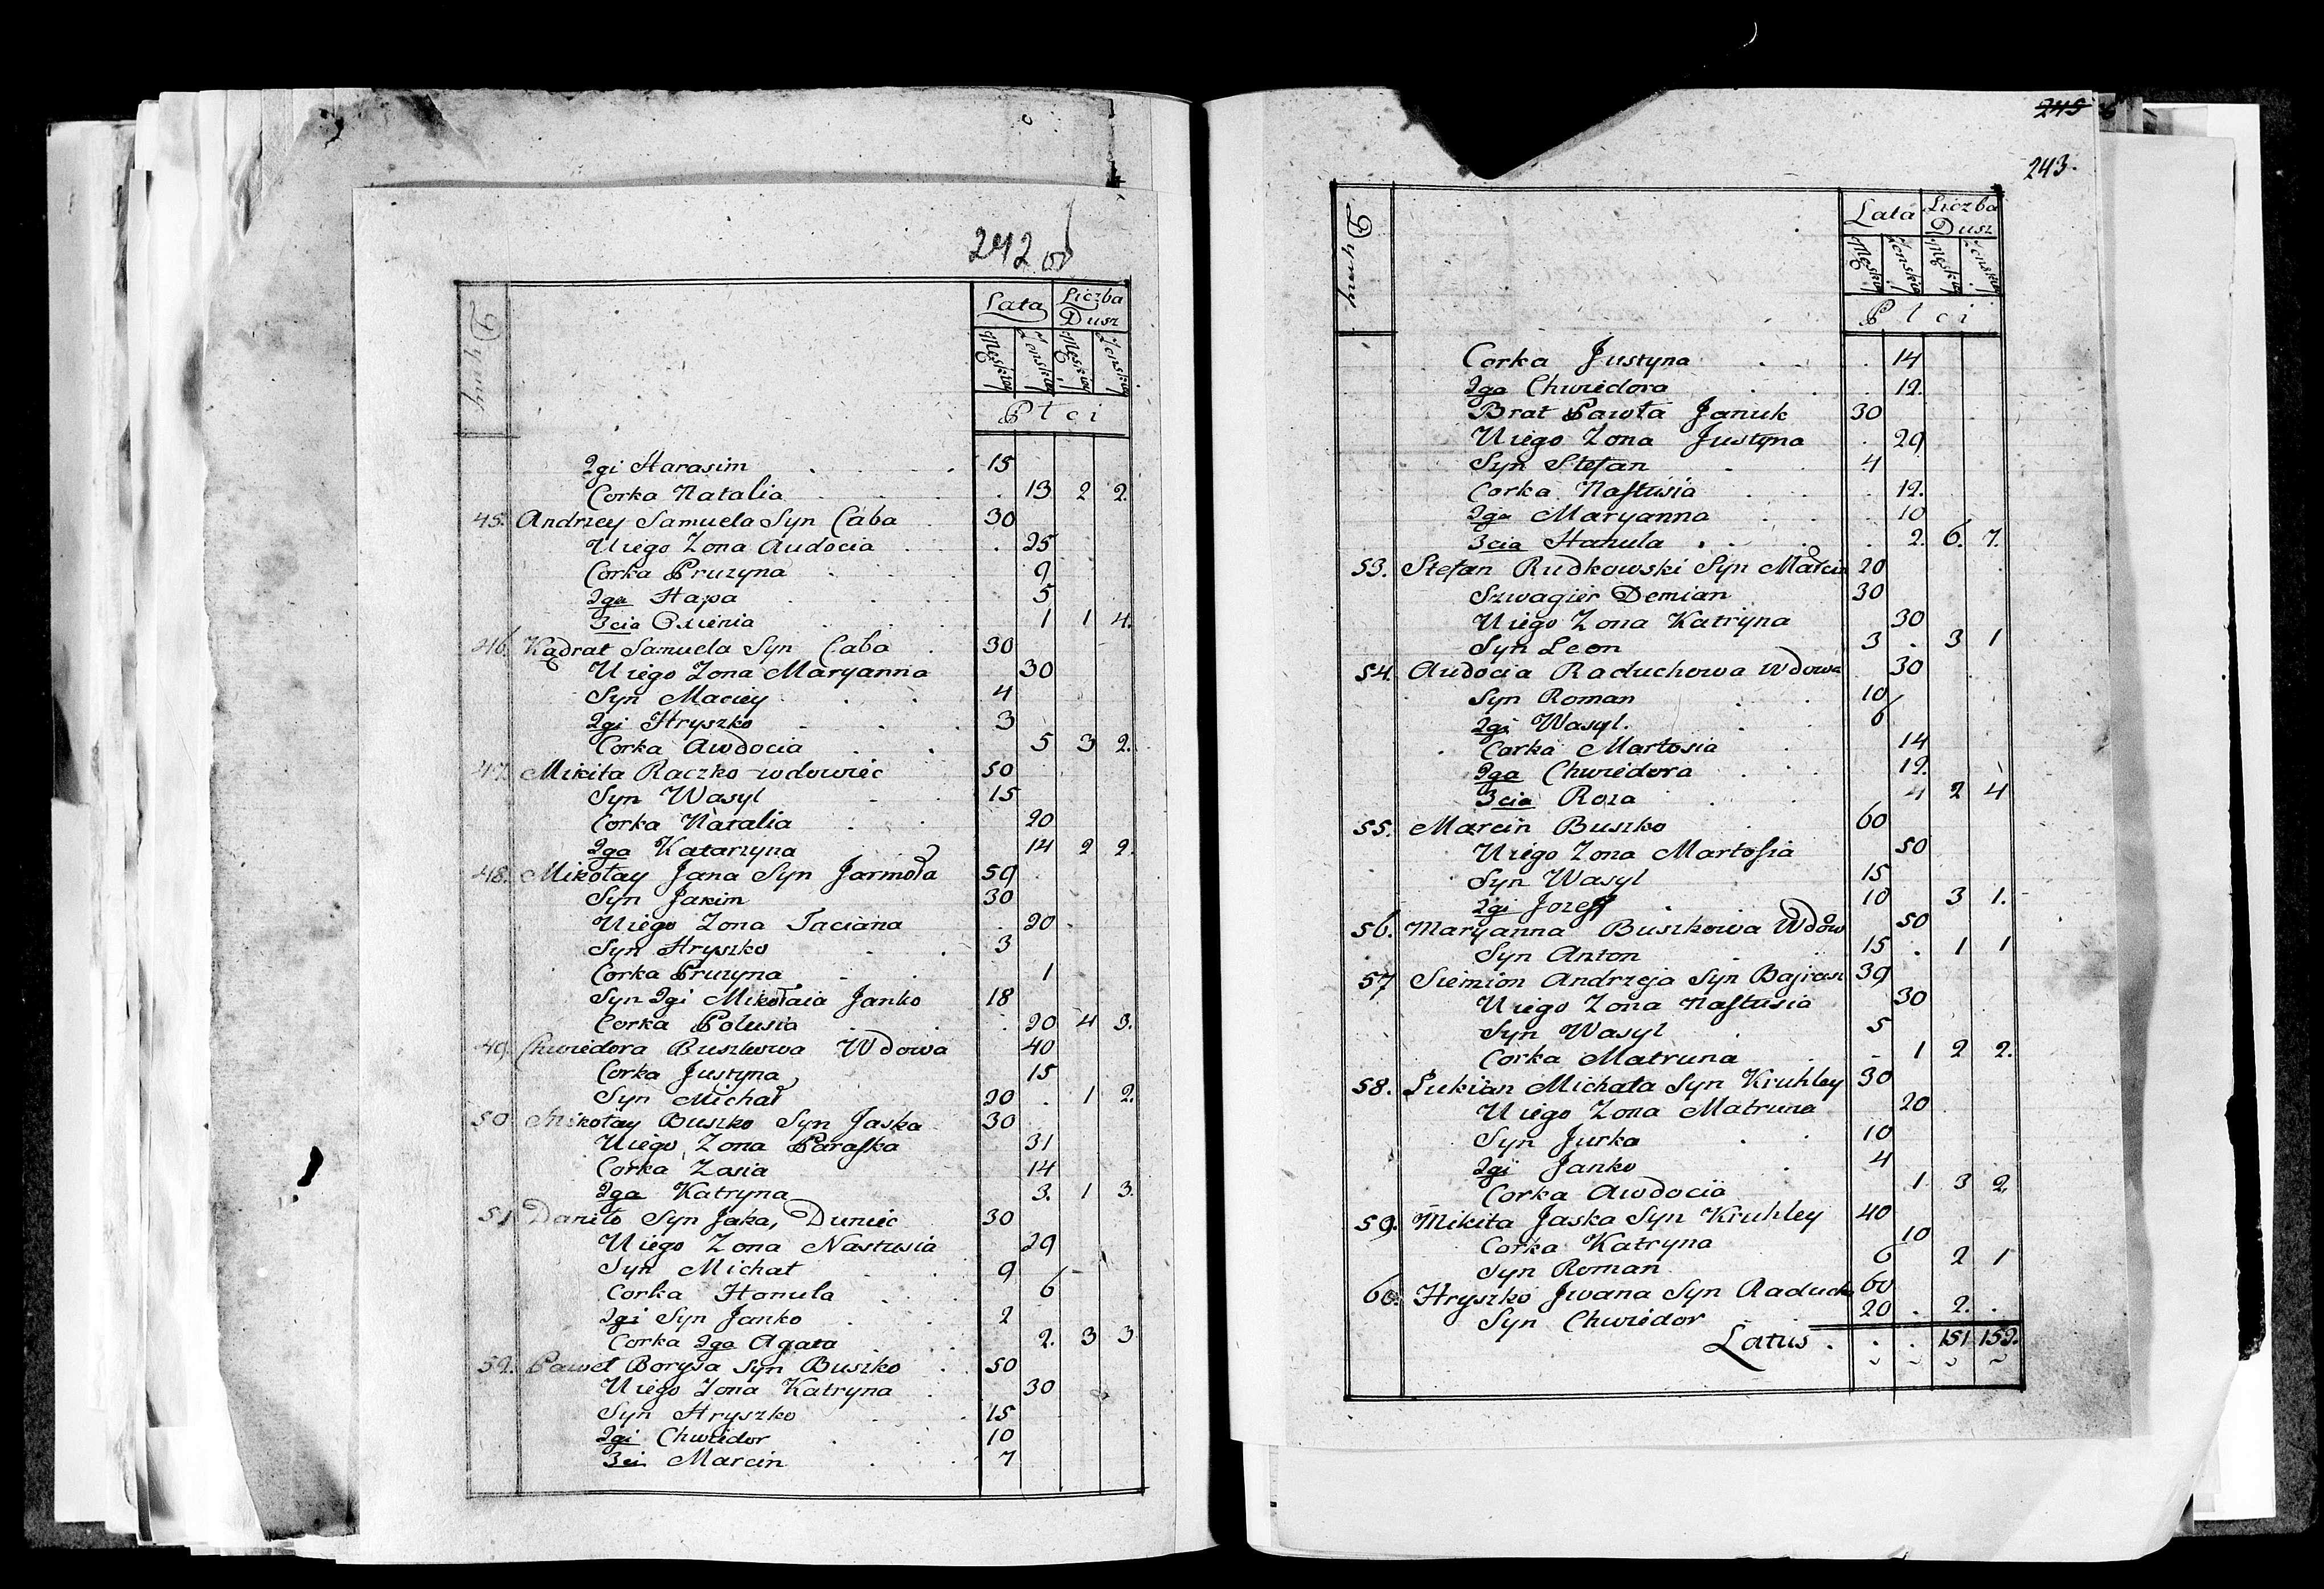 242 od
Dymy Lata Liczba Dusz
Męskiey Żenskiey Męskiey Żenskiey
Płci
2gi Harasim 15
Corka Natalia 13 2 2.
45. Andrzey Samuela Syn Caba 30
U iego Zona Audocia 25
Corka Pruzyna 9
2ga Hapa 5
3cia Oxienia 1 1 4.
46. Kądrat Samuela Syn Caba 30
U iego Zona Maryanna 30
Syn Maciey 4
2gi Hryszko 3
Corka Awdocia 5 3 2.
47. Mikita Raczko wdowiec 50
Syn Wasyl 15
Corka Natalia 20
2ga Katarzyna 14 2 2.
48. Mikołay Jana Syn Jarmoła 59
Syn Jakim 30
U iego Zona Taciana 20
Syn Hryszko 3
Corka Pruzyna 1
Syn 2gi Mikołaia Janko 18
Corka Polusia 20 4 3.
49. Chwiedora Buszkowa Wdowa 40
Corka Justyna 15
Syn Michał 20 1 2.
50 Mikołay Buszko Syn Jaska 30
U iego Zona Paraska 31
Corka Zasia 14
2ga Katryna 3. 1 3.
51 Daniło Syn Jaka, Duniec 30
U iego Zona Nastusia 29
Syn Michał 9
Corka Hanula 6
2gi Syn Janko 2
Corka 2ga Agata 2. 3 3
52. Paweł Borysa Syn Buszko 50
U iego Zona Katryna 30
Syn Hryszko 15
2gi Chwiedor 10
3ci Marcin 7
245
243.
Dymy Lata Liczba Dusz
Męskiey Żenskiey Męskiey Żenskiey
Płci
Corka Justyna 14
2ga Chwiedora 12.
Brat Pawła Januk 30
U iego Zona Justyna 29
Syn Stefan 4
Corka Nastusia 12.
2ga Maryanna 10
3cia Hanula 2. 6. 7.
53. Stefan Rudkowski Syn Marcia 20
Szwagier Demian 30
U iego Zona Katryna 30
Syn Leon 3 3 1
54. Audocia Raduchowa Wdowa 30
Syn Roman 10
2gi Wasyl. 6
Corka Martosia 14
2ga Chwiedora 12.
3cia Roza 4 2 4
55. Marcin Buszko 60
U iego Zona Martosia 50
Syn Wasyl 15
2gi Jozeff 10 3 1.
56. Maryanna Buszkowa Wdow 50
Syn Anton 15 1 1
57 Siemion Andrzeja Syn 39
U iego Zona Nastusia 30
Syn Wasyl 5
Corka Matruna 1 2 2.
58. Łukian Michała Syn Kruhley 30
U iego Zona Matruna 20
Syn Jurka 10
2gi Janko 4
Corka Awdocia 1 3 2.
59. Mikita Jaska Syn Kruhley 40
Corka Katryna 10
Syn Roman 6 2 1
60. Hryszko Jwana Syn Raducha 60
Syn Chwiedor 20 2.
Latus 151 152.